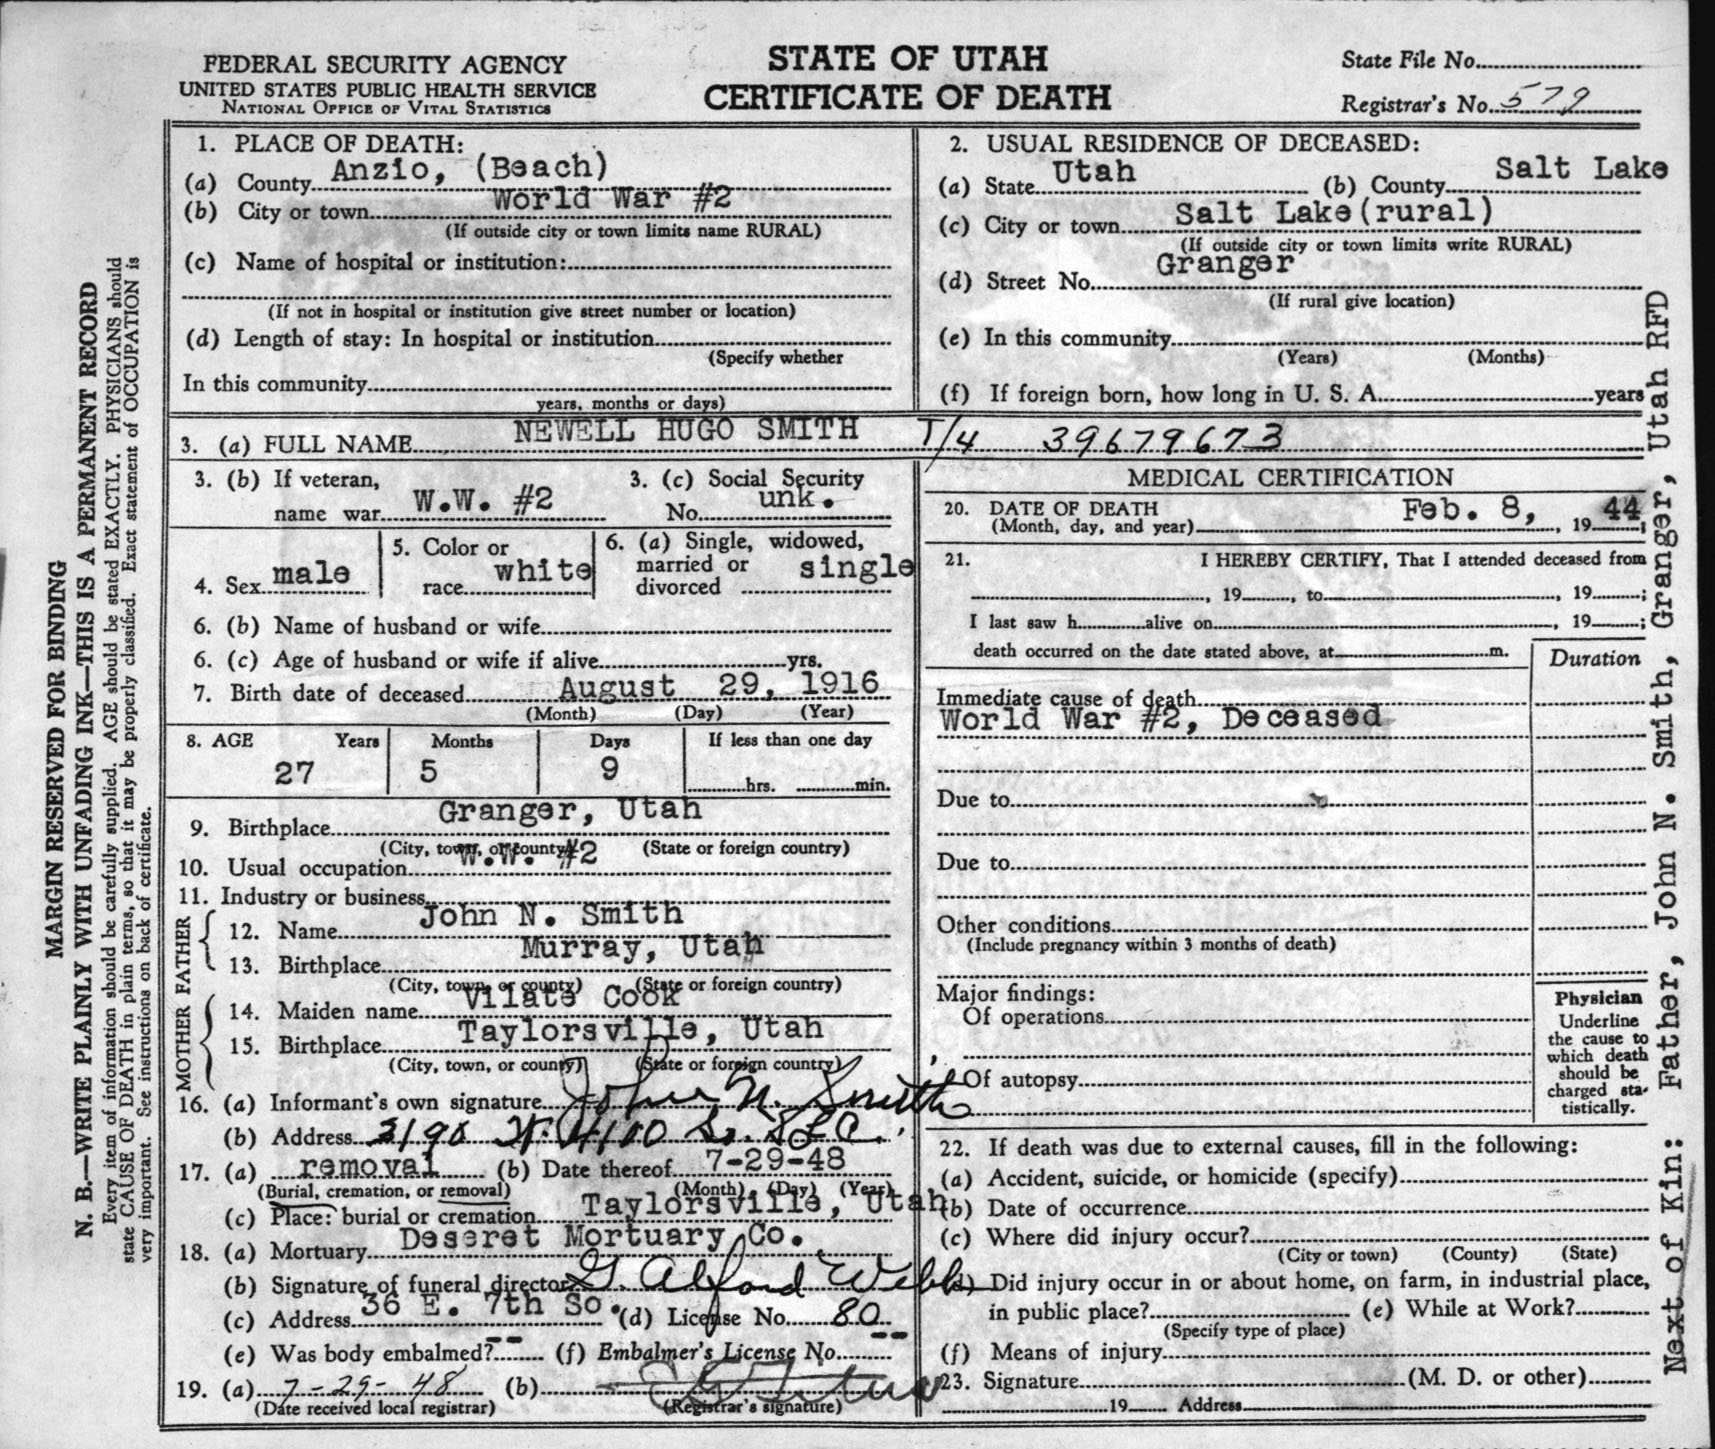 FEDERAL SECURITY AGENCY
UNITED STATES PUBLIC HEALTH SERVICE
NATIONAL OFFICE OF VITAL STATISTICS
STATE OF UTAH
CERTIFICATE OF DEATH
State File No.
Registrar's No. 579
1. PLACE OF DEATH:
(a) County Anzio, (Beach)
(b) City or town World War #2
(If outside city or town limits name RURAL)
(c) Name of hospital or institution:
(If not in hospital or institution give street number or location)
(d) Length of stay: In hospital or institution
(Specify whether
In this community
years, months or days)
2. USUAL RESIDENCE OF DECEASED:
(a) State Utah (b) County Salt Lake
(c) City or town Salt Lake(rural)
(If outside city or town limits write RURAL)
(d) Street No. Granger
(If rural give location)
(e) In this community
(Years) (Months)
(f) If foreign born, how long in U. S. A. years
3. (a) FULL NAME NEWELL HUGO SMITH T/4 39679673
3. (b) If veteran, name war W.W. #2
3. (c) Social Security No. unk.
4. Sex male
5. Color or race white
6. (a) Single, widowed, married or divorced single
6. (b) Name of husband or wife
6. (c) Age of husband or wife if alive yrs.
7. Birth date of deceased August 29, 1916
(Month) (Day) (Year)
8. AGE Years Months Days If less than one day
27 5 9 hrs. min.
9. Birthplace Granger, Utah
(City, town, or county) (State or foreign country)
10. Usual occupation W.W. #2
11. Industry or business
FATHER
12. Name John N. Smith
13. Birthplace Murray, Utah
(City, town, or county) (State or foreign country)
MOTHER
14. Maiden name Vilate Cook
15. Birthplace Taylorsville, Utah
(City, town, or county) (State or foreign country)
16. (a) Informant's own signature John N. Smith
(b) Address 3190 W. 4100 So. SLC.
17. (a) removal (b) Date thereof 7-29-48
(Burial, cremation, or removal) (Month) (Day) (Year)
(c) Place: burial or cremation Taylorsville, Utah
18. (a) Mortuary Deseret Mortuary Co.
(b) Signature of funeral director G. Alford Webb
(c) Address 36 E. 7th So. (d) License No. 80
(e) Was body embalmed? -- (f) Embalmer's License No. --
19. (a) 7-29-48 (b)
(Date received local registrar) (Registrar's signature)
MEDICAL CERTIFICATION
20. DATE OF DEATH
(Month, day, and year) Feb. 8, 19 44;
21. I HEREBY CERTIFY, That I attended deceased from
, 19 , to , 19 ;
I last saw h alive on , 19 ;
death occurred on the date stated above, at m.
Duration
Immediate cause of death
World War #2, Deceased
Due to
Due to
Other conditions
(Include pregnancy within 3 months of death)
Major findings:
Of operations
Of autopsy
Physician
Underline
the cause to
which death
should be
charged sta-
tistically.
22. If death was due to external causes, fill in the following:
(a) Accident, suicide, or homicide (specify)
(b) Date of occurrence
(c) Where did injury occur?
(City or town) (County) (State)
(d) Did injury occur in or about home, on farm, in industrial place,
in public place? (e) While at Work?
(Specify type of place)
(f) Means of injury
23. Signature (M. D. or other)
19 Address
MARGIN RESERVED FOR BINDING
N. B.—WRITE PLAINLY WITH UNFADING INK—THIS IS A PERMANENT RECORD
Every item of information should be carefully supplied. AGE should be stated EXACTLY. PHYSICIANS should
state CAUSE OF DEATH in plain terms, so that it may be properly classified. Exact statement of OCCUPATION is
very important. See instructions on back of certificate.
Next of Kin: Father, John N. Smith, Granger, Utah RFD